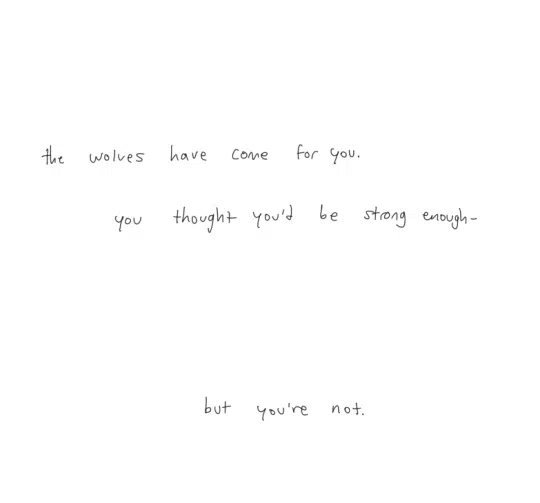 the wolves have come for you.
you thought you'd be strong enough-
but you're not.